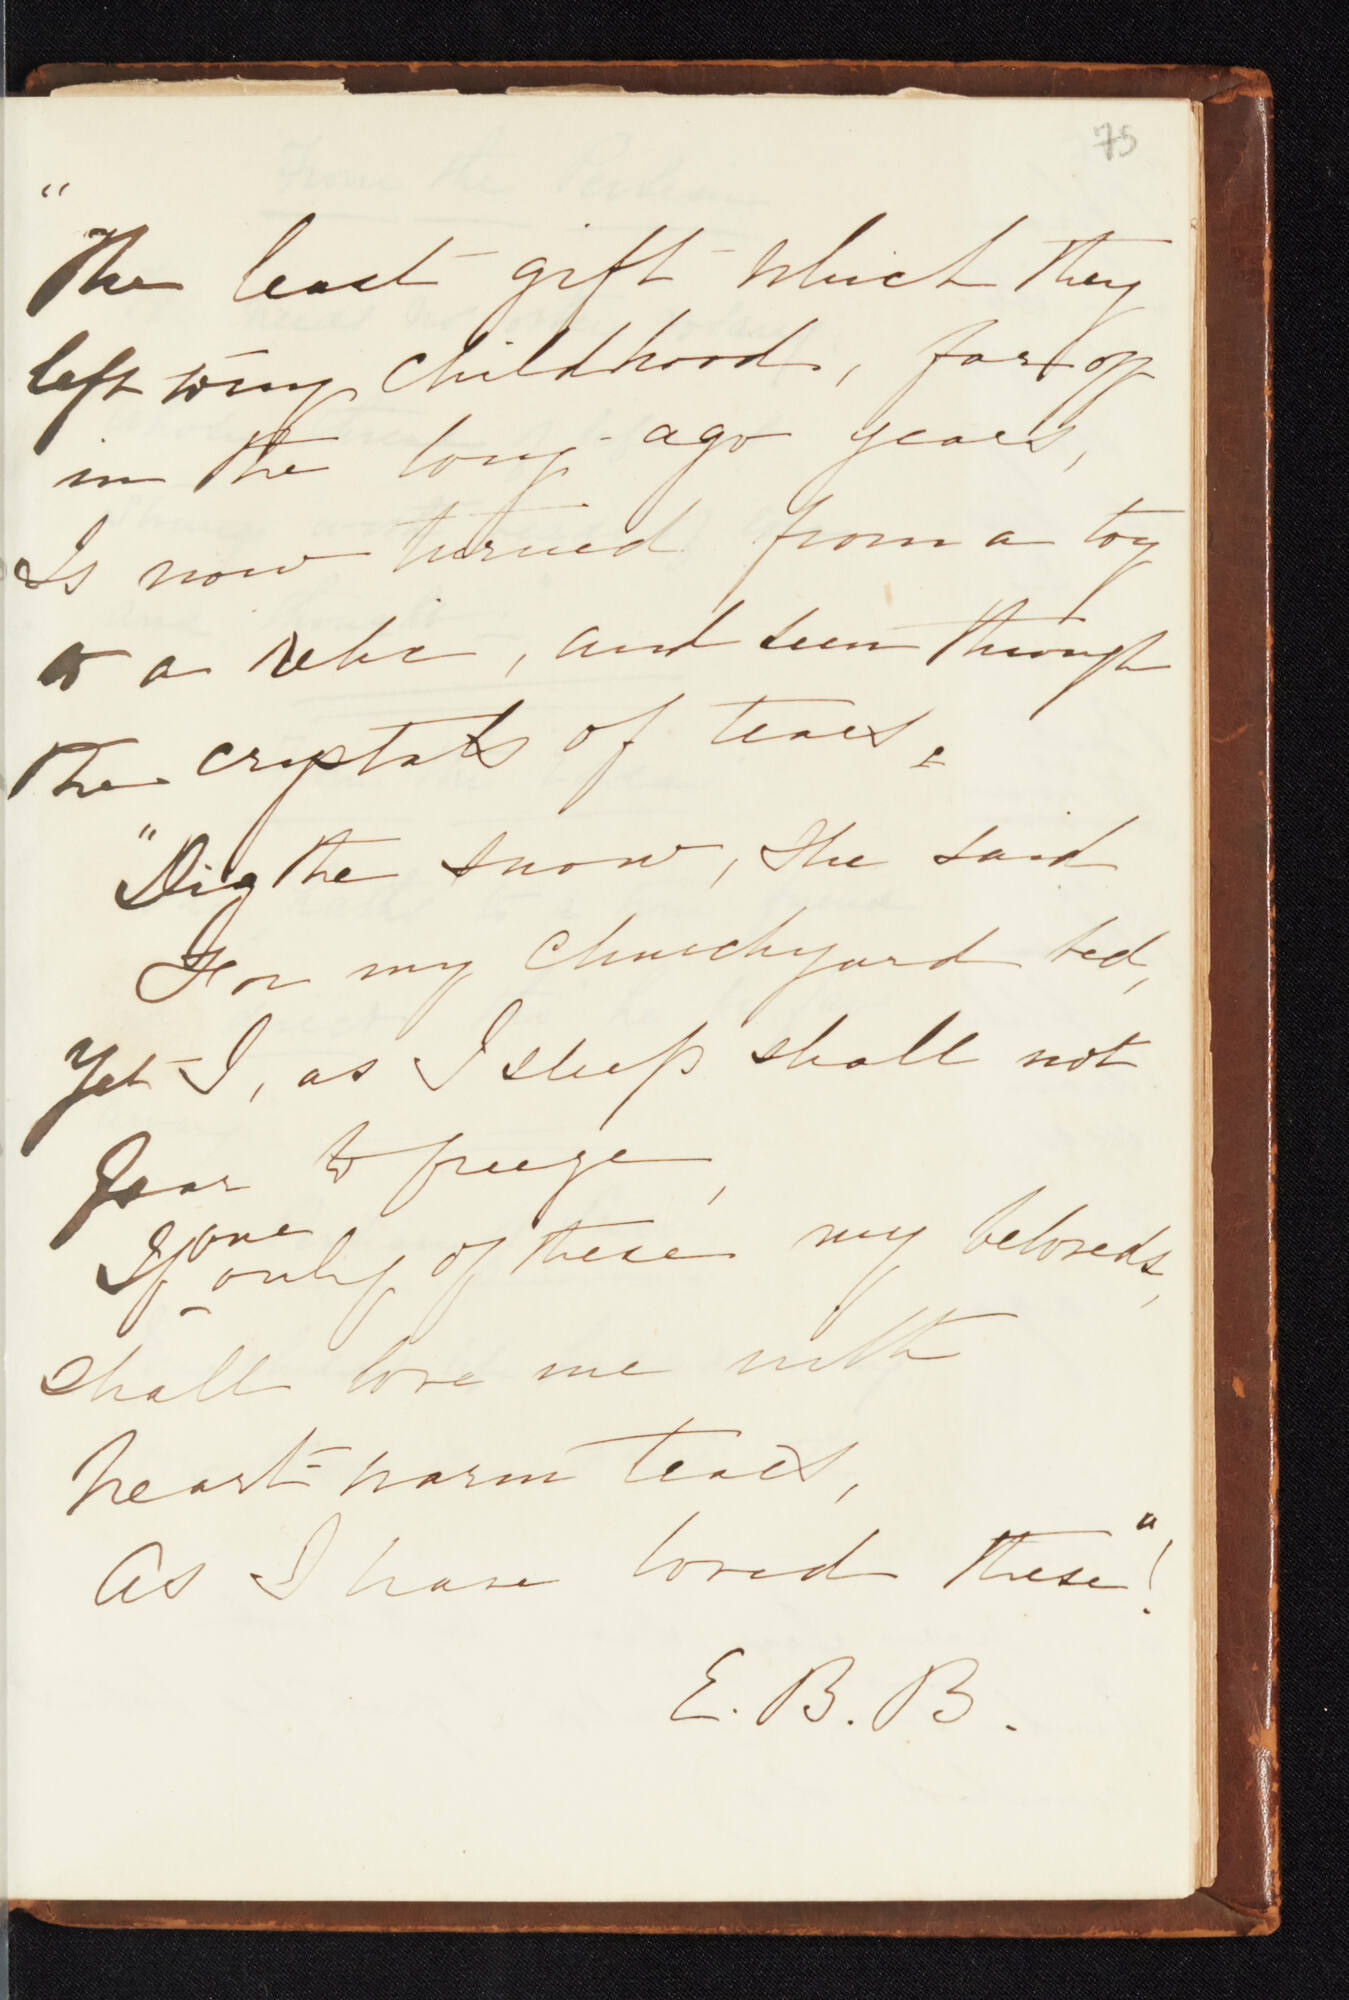 75
"
The least gift which they
left to my childhood, far off
in the long-ago years,
Is now turned from a toy
to a relic, and seen through
the crystals of tears.
"Dig the snow, she said
For my churchyard bed,
Yet I, as I sleep shall not
fear to freeze,
If one only of these my beloveds,
shall love me with
heart-warm tears,
As I have loved these"!
E. B. B.